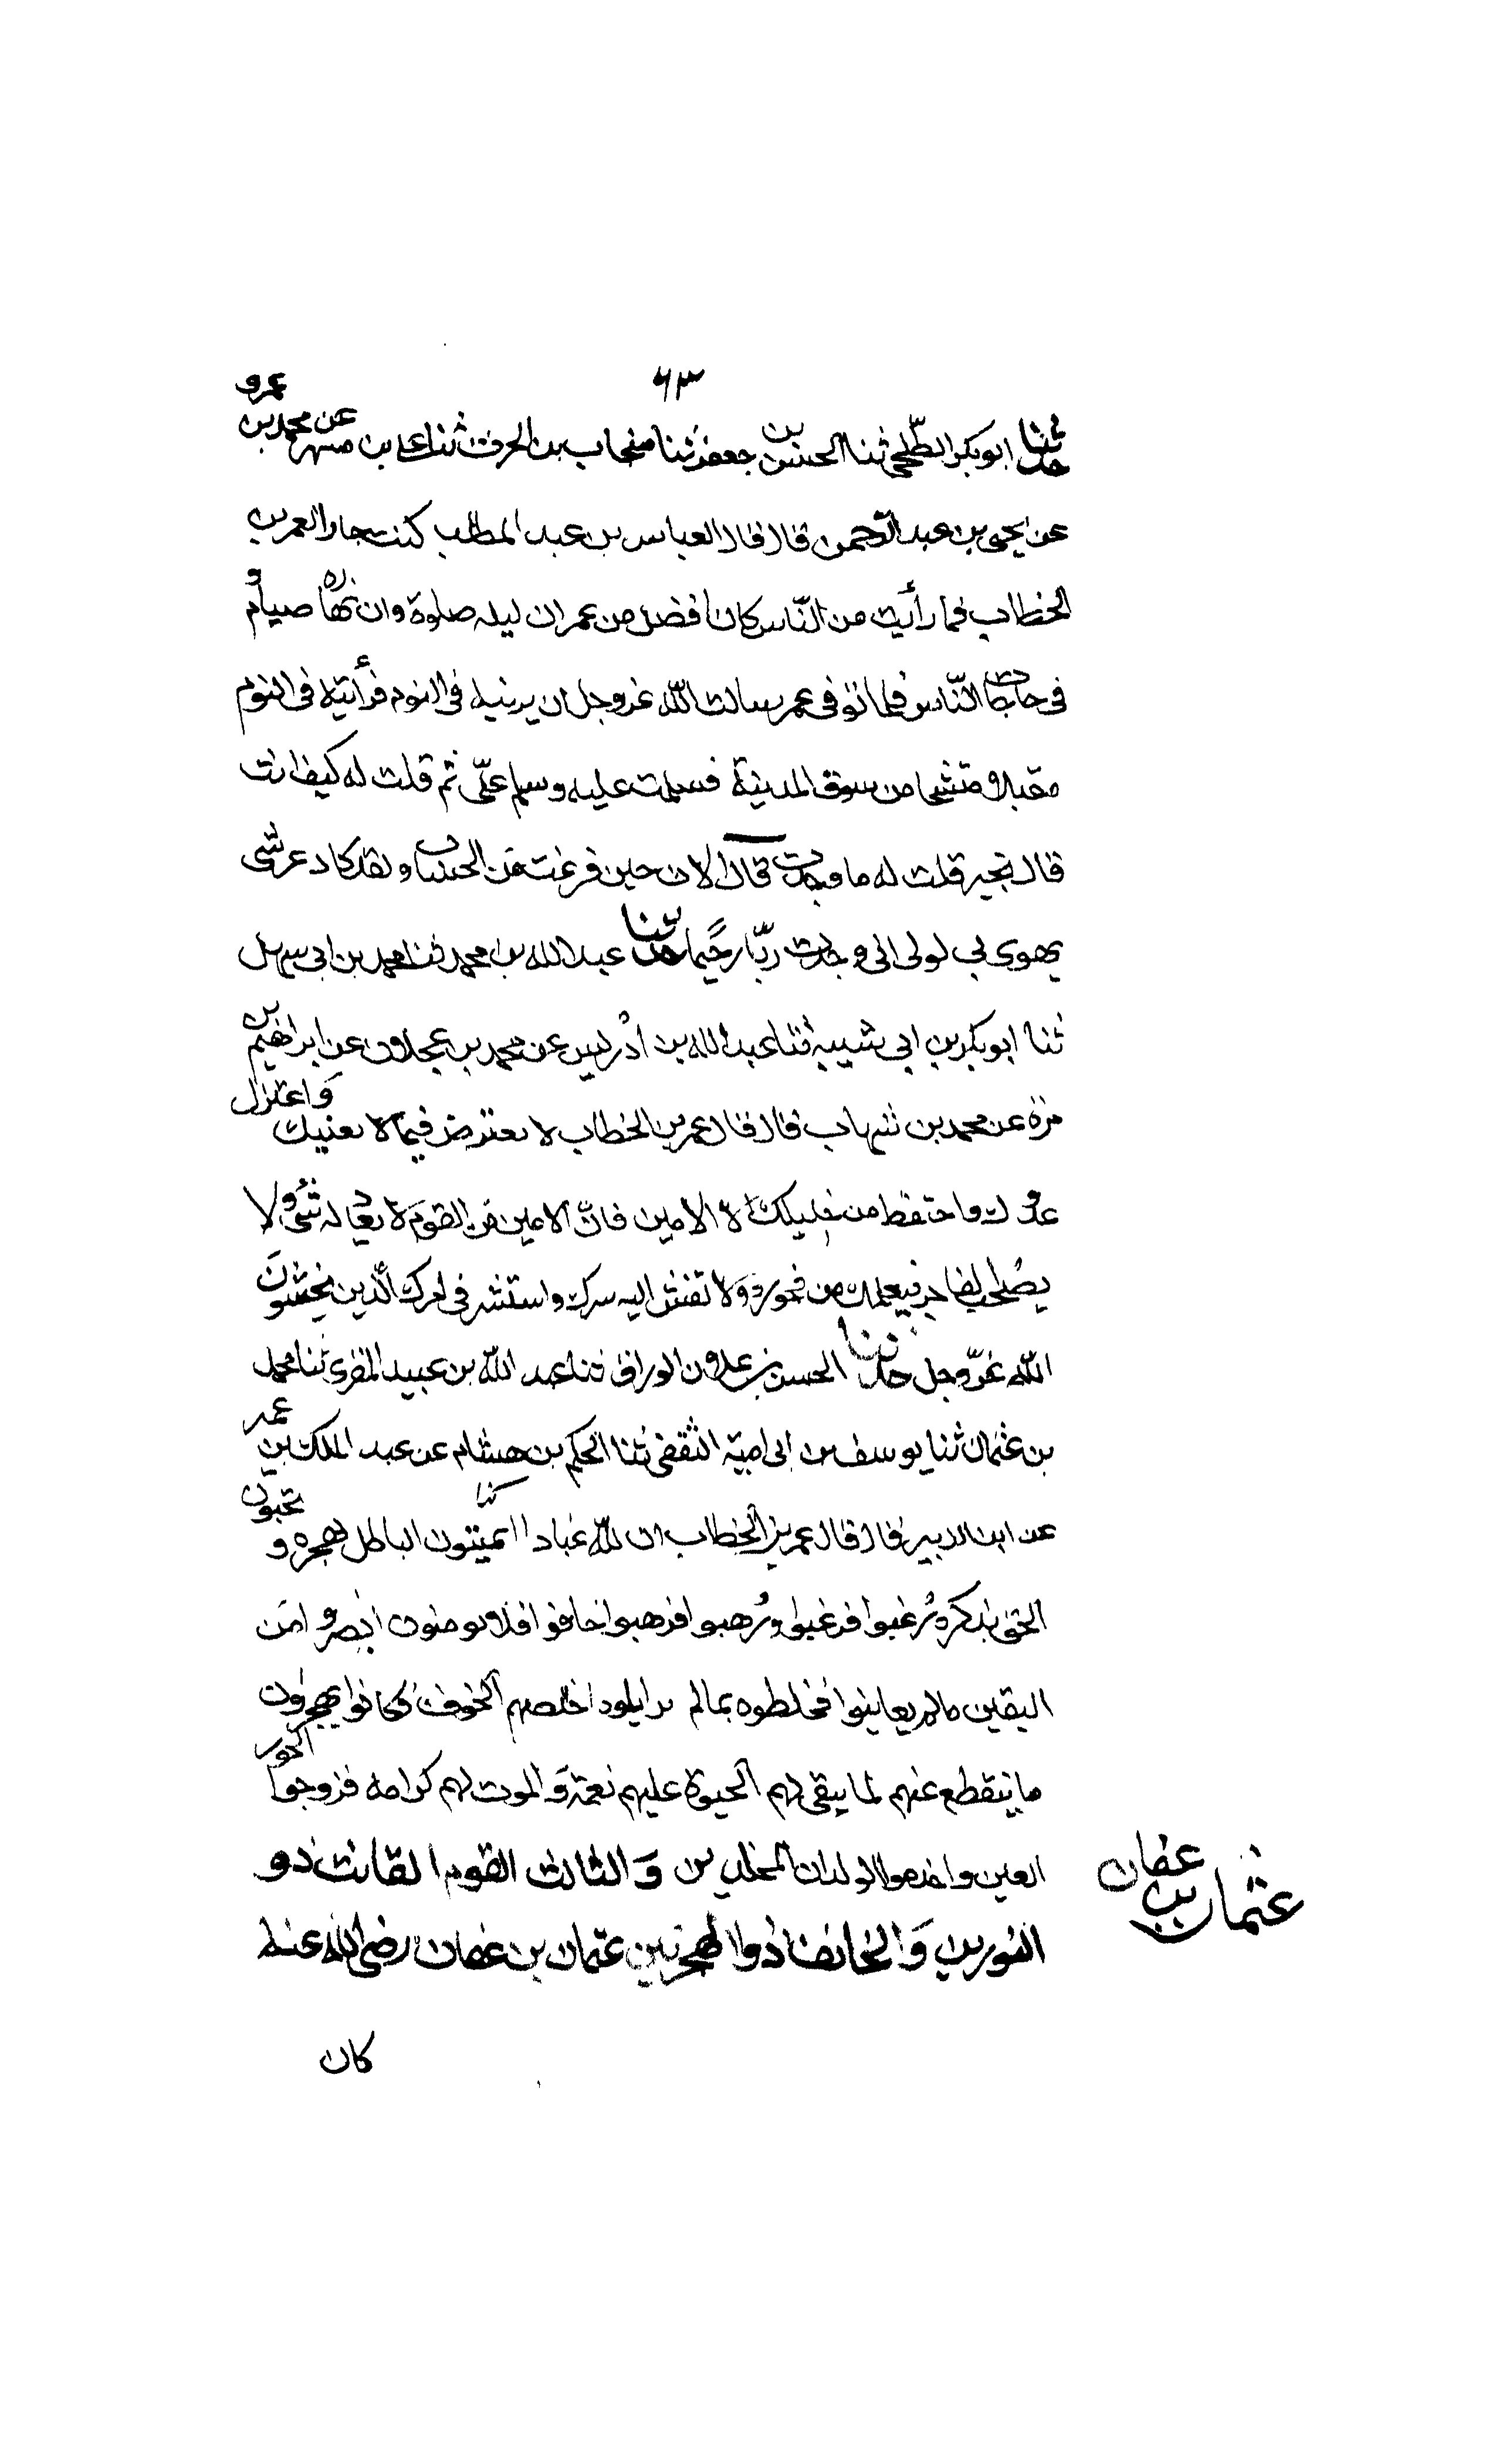 ٦٣
حدثنا ابو بكر الطلحي ثنا الحسن بن جعفر ثنا منجاب بن الحرث ثنا علي بن مسهر عن محمد بن عمرو
عن يحيى بن عبد الرحمن قال قال العباس بن عبد المطلب كنت جارا لعمر بن
الخطاب فما رأيت من النّاس كان افضل من عمر ان ليله صلوة وان نهاره صيام و
في حاجات النّاس فلما توفى عمر سالت اللّه عز وجل ان يرينيه في النوم فرأيته في النوم
مقبلا متشحا من سوق المدينة فسلمت عليه وسلم علّي ثم قلت له كيف انت
قال بخير قلت له ما وجدت قال الان حين فرغت من الحساب ولقد كاد عرشى
يهوى بي لولى انى وجدت ربّا رحيما حدثنا عبد الله بن محمد ثنا محمد بن ابى سهل
ثنا ابو بكر بن ابي شيبة ثنا عبد الله بن ادريس عن محمد بن عجلان عن ابراهيم بن
مرة عن محمد بن شهاب قال قال عمر بن الخطاب لا تعترض فيما لا يعنيك واعتزل
عدوك واحتفظ من خليلك الا الامين فانّ الامين من القوم لا يعادله شئ ولا
تصحب الفاجر فيعلمك من فجوره ولا تفش اليه سرك واستشر في امرك الّذين يخشون
اللّه عزّ وجل حدثنا الحسن بن علان الوراق ثنا عبد اللّه بن عبيد المقرى ثنا محمد
بن عثمان ثنا يوسف بن ابى امية الثقفى ثنا الحكم بن هشام عن عبد الملك بن عمير
عن ابن الزبير قال قال عمر بن الخطاب ان للّه عبادا يميتون الباطل بهجره و يحيون
الحق بذكره رُغبوا فرغبوا ورُهبوا فرهبوا خافوا فلا يومنون ابصروا من
اليقين ما لم يعاينوا فخلطوه بما لم يزايلوه اخلصهم الخوف كانوا يهجرون
ما ينقطع عنهم لما يبقى لهم الحيوة عليهم نعمة والموت لهم كرامه فزوجوا الحور
العين واخدموا الولدان المخلدين وَالثالث القوم القانت ذو
النورين وَالخائف ذوا لهجرتين عثمان بن عفان رضى اللّه عنه
عثمان بن عفان
كان